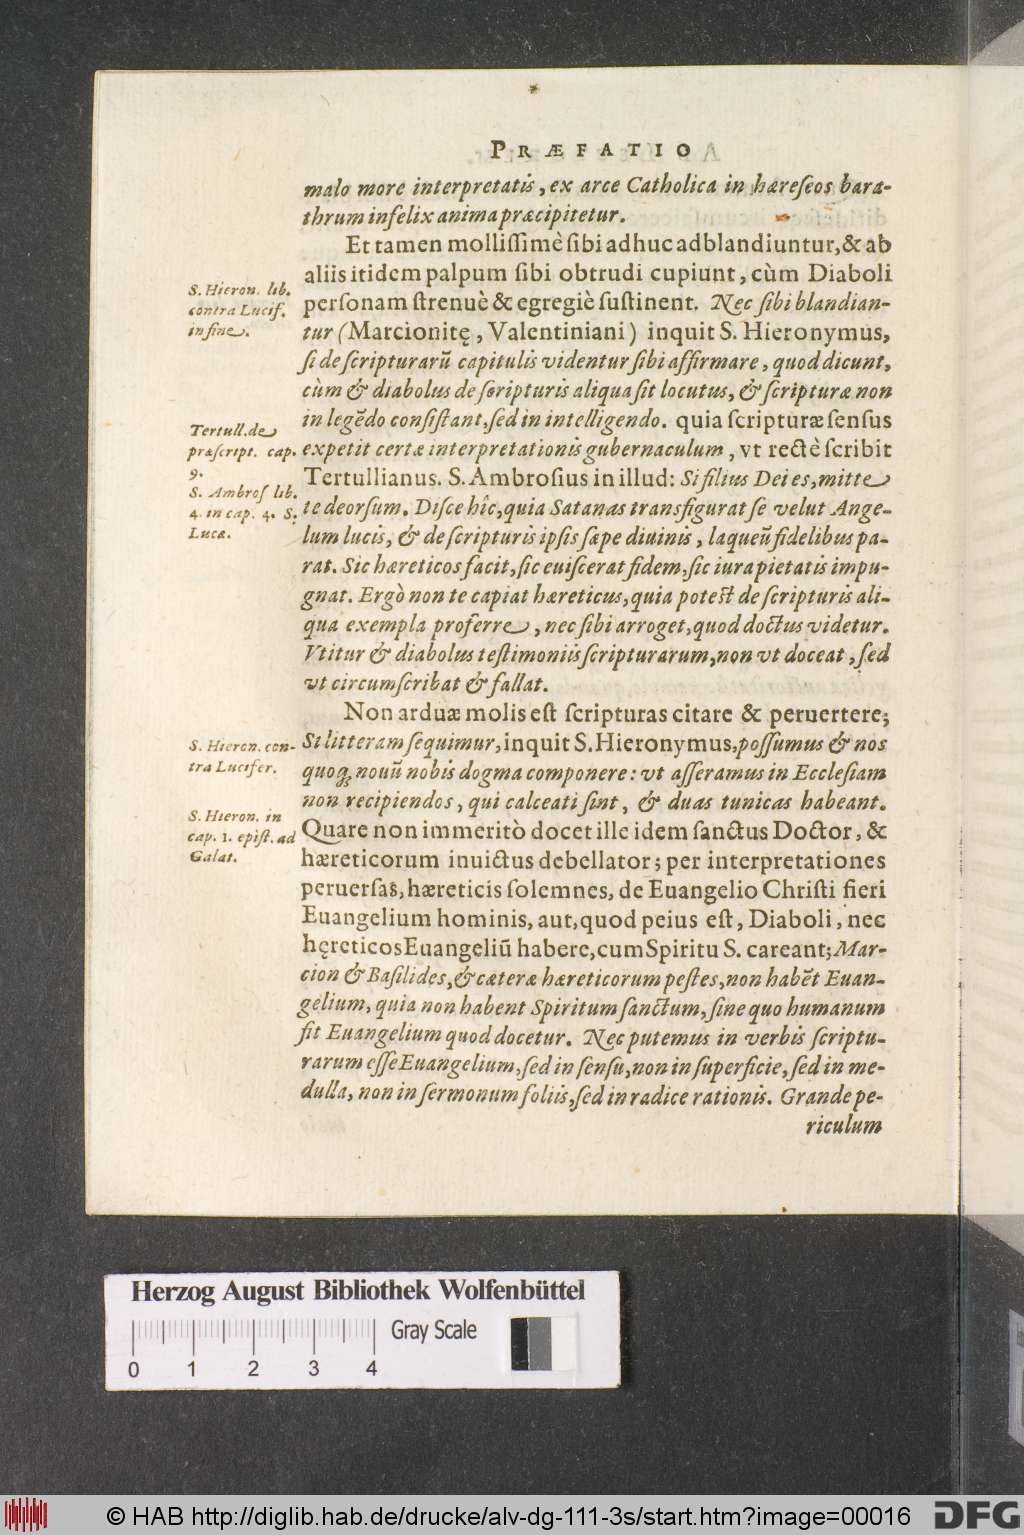 PRÆFATIO
malo more interpretatis, ex arce Catholica in hæreſeos bara-
thrum infelix anima præcipitetur.
Et tamen molliſſimè ſibi adhuc adblandiuntur, & ab
aliis itidem palpum ſibi obtrudi cupiunt, cùm Diaboli
perſonam ſtrenuè & egregiè ſuſtinent. Nec ſibi blandian-
tur (Marcionitę, Valentiniani) inquit S. Hieronymus,
ſi de ſcripturarū capitulis videntur ſibi affirmare, quod dicunt,
cùm & diabolus de ſcripturis aliqua ſit locutus, & ſcripturæ non
in legēdo conſiſtant, ſed in intelligendo. quia ſcripturæ ſenſus
expetit certæ interpretationis gubernaculum, vt rectè ſcribit
Tertullianus. S. Ambroſius in illud: Si filius Dei es, mitte
te deorſum. Diſce hîc, quia Satanas transfigurat ſe velut Ange-
lum lucis, & de ſcripturis ipſis ſæpe diuinis, laqueū fidelibus pa-
rat. Sic hæreticos facit, ſic euiſcerat fidem, ſic iura pietatis impu-
gnat. Ergò non te capiat hæreticus, quia poteſt de ſcripturis ali-
qua exempla proferre, nec ſibi arroget, quod doctus videtur.
Vtitur & diabolus teſtimoniis ſcripturarum, non vt doceat, ſed
vt circumſcribat & fallat.
Non arduæ molis eſt ſcripturas citare & peruertere;
Si litteram ſequimur, inquit S. Hieronymus, poſſumus & nos
quoq; nouū nobis dogma componere: vt aſſeramus in Eccleſiam
non recipiendos, qui calceati ſint, & duas tunicas habeant.
Quare non immeritò docet ille idem ſanctus Doctor, &
hæreticorum inuictus debellator; per interpretationes
peruerſas, hæreticis ſolemnes, de Euangelio Chriſti fieri
Euangelium hominis, aut, quod peius eſt, Diaboli, nec
hęreticos Euangeliū habere, cum Spiritu S. careant; Mar-
cion & Baſilides, & cæteræ hæreticorum peſtes, non habēt Euan-
gelium, quia non habent Spiritum ſanctum, ſine quo humanum
fit Euangelium quod docetur. Nec putemus in verbis ſcriptu-
rarum eſſe Euangelium, ſed in ſenſu, non in ſuperficie, ſed in me-
dulla, non in ſermonum foliis, ſed in radice rationis. Grande pe-
riculum
S. Hieron. lib.
contra Lucif.
in fine.
Tertull. de
præſcript. cap.
9.
S. Ambroſ lib.
4. in cap. 4. S.
Lucæ.
S. Hieron. con-
tra Lucifer.
S. Hieron. in
cap. 1. epiſt. ad
Galat.
Herzog August Bibliothek Wolfenbüttel
Gray Scale
0 1 2 3 4
© HAB http://diglib.hab.de/drucke/alv-dg-111-3s/start.htm?image=00016
DFG